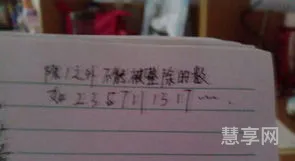 除1之外不能被整除的数
如 2 3 5 7 11 13 17 ……
慧享网